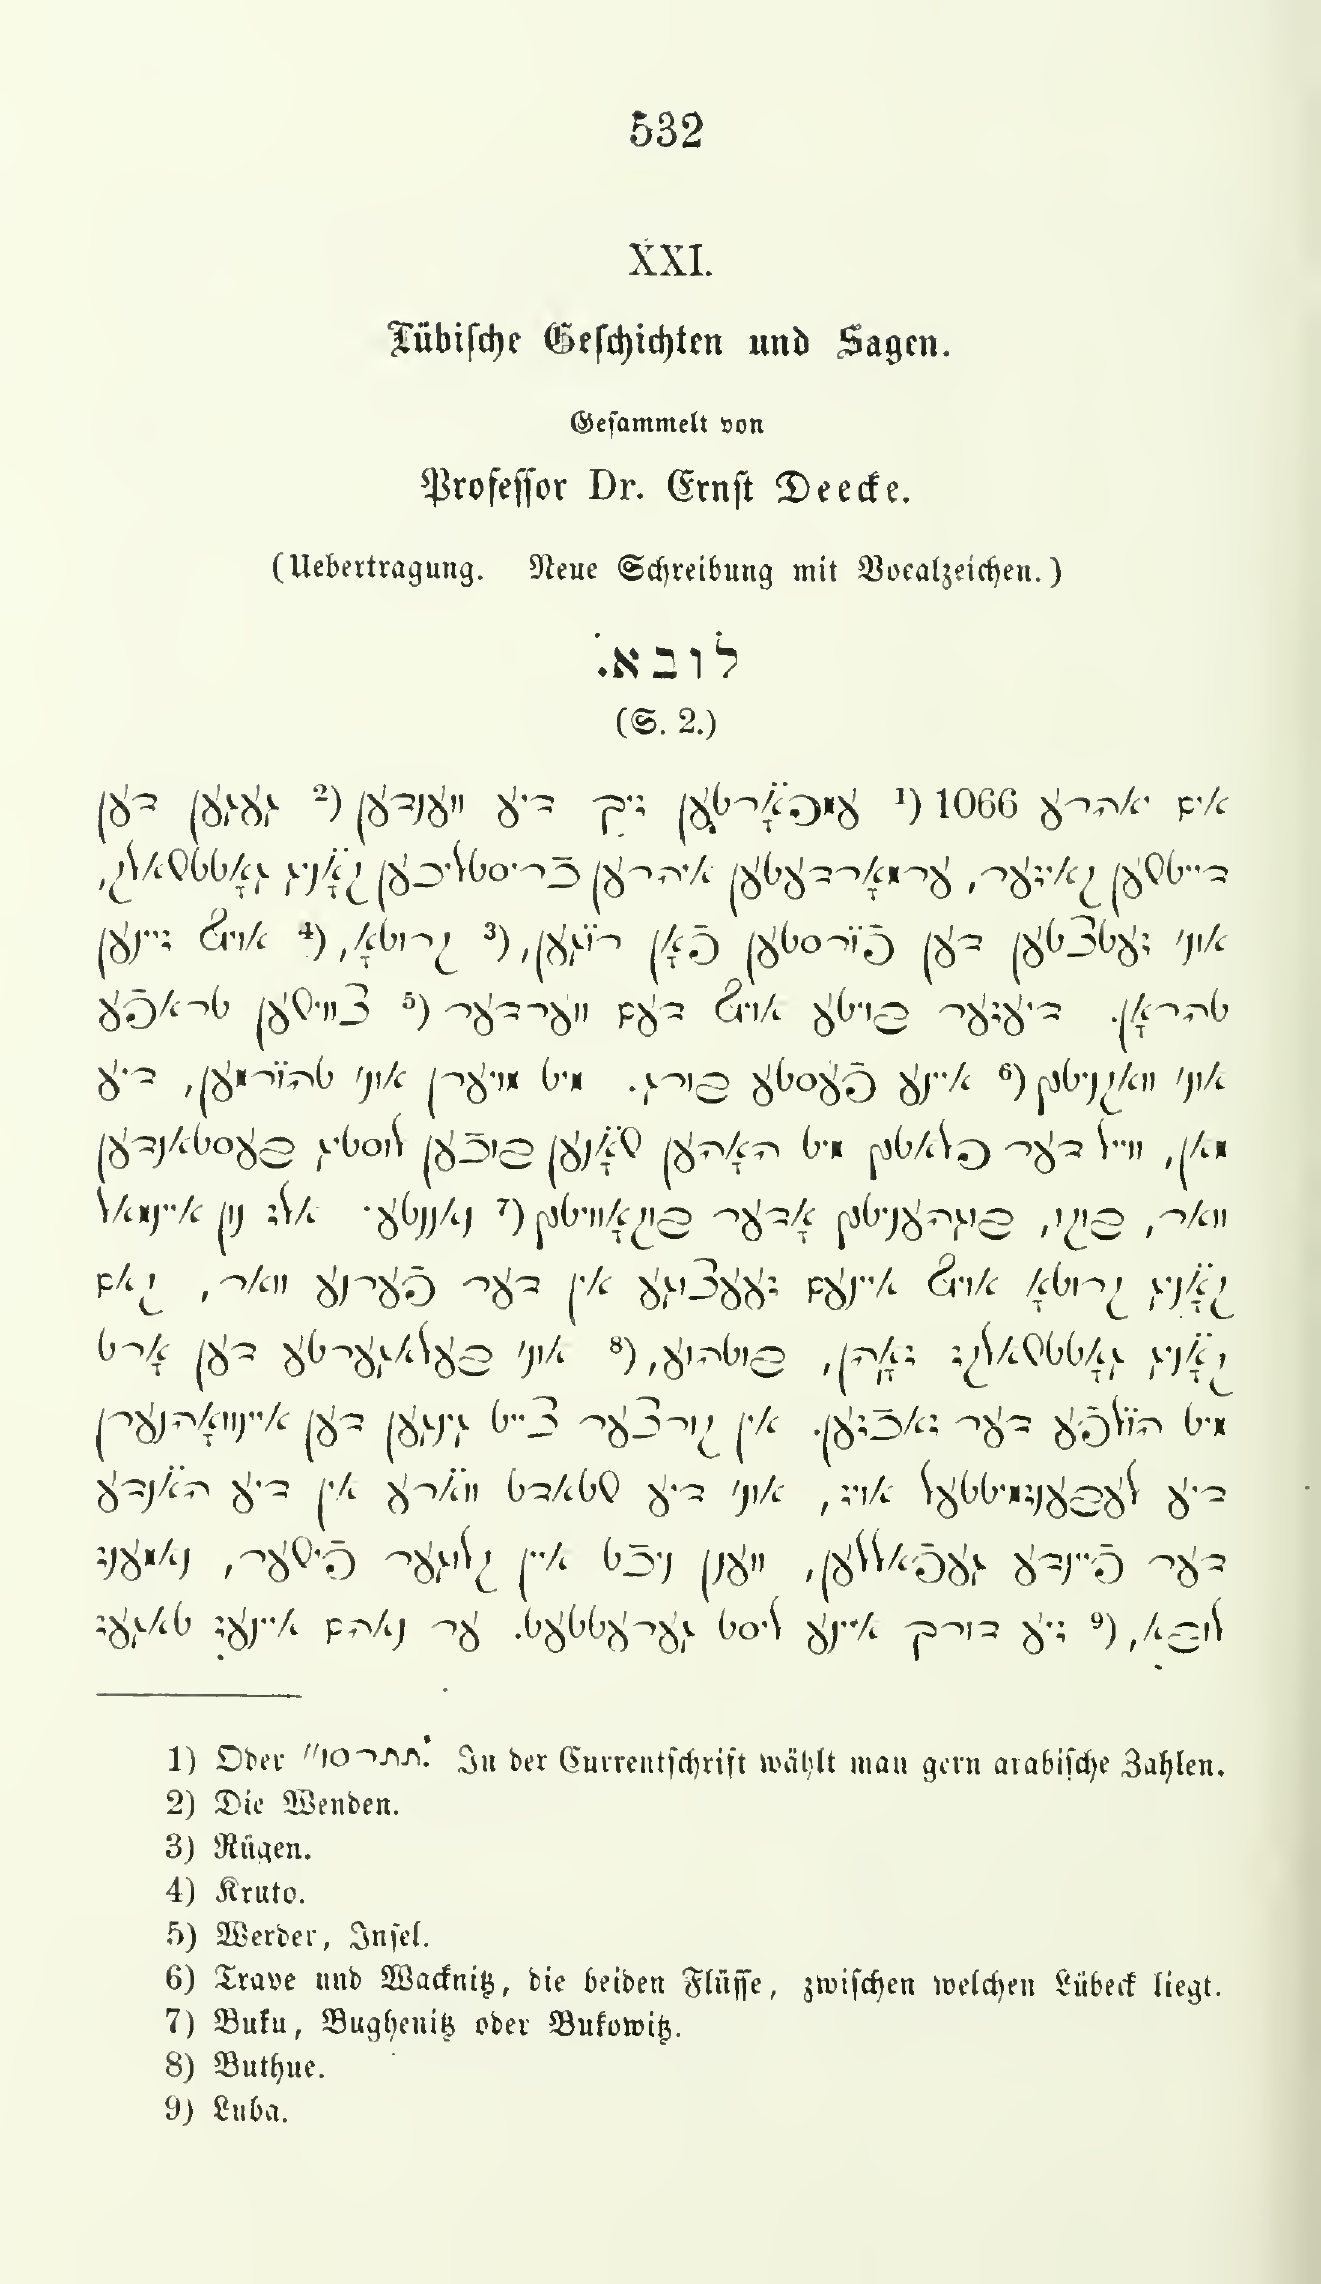 532
XXI.
Lübische Geschichten und Sagen.
Gesammelt von
Professor Dr. Ernst Deecke.
(Uebertragung. Neue Schreibung mit Vocalzeichen.)
לובא.
(S. 2.)
אים יאהרע 1066 (¹ עמפאָ̈רטען זיך דיע ווענדען (² געגען דען
דייטשען קאיזער, ערמאָרדעטען איהרען כֿריסטליכֿען קאָ̈ניג גאָטטשאלק,
אונ' זעטצטען דען פֿו̈רסטען פֿאָן רו̈גען, (³ קרוטאָ, (⁴ אויף זיינען
טהראָן. דיעזער בויטע אויף דעם ווערדער (⁵ צווישען טראפֿע
אונ' וואקניטץ (⁶ איינע פֿעסטע בורג. מיט מויערן אונ' טהו̈רמען, דיע
מאן, ווייל דער פלאטץ מיט האָהען שאָ̈נען בוכֿען לוסטיג בעסטאנדען
וואר, בוקו, בוגהעניטץ אָדער בוקאָוויטץ (⁷ נאננטע· אלז נון איינמאל
קאָ̈ניג קרוטאָ אויף איינעם זעעצוגע אין דער פֿערנע וואר, קאם
קאָ̈ניג גאָטטשאלקז זאָהן, בוטהוע, (⁸ אונ' בעלאגערטע דען אָרט
מיט הו̈לפֿע דער זאכֿזען. אין קורצער צייט גינגען דען איינוואָהנערן
דיע לעבענזמיטטעל אויז, אונ' דיע שטאדט ווא̈רע אין דיע הא̈נדע
דער פֿיינדע געפֿאללען, ווענן ניכֿט איין קלוגער פֿישער, נאמענז
לובא, (⁹ זיע דורך איינע ליסט גערעטטעט. ער נאהם איינעז טאגעז
1) Oder תתרסו״. In der Currentschrift wählt man gern arabische Zahlen.
2) Die Wenden.
3) Rügen.
4) Kruto.
5) Werder, Insel.
6) Trave und Wacknitz, die beiden Flüsse, zwischen welchen Lübeck liegt.
7) Buku, Bughenitz oder Bukowitz.
8) Buthue.
9) Luba.